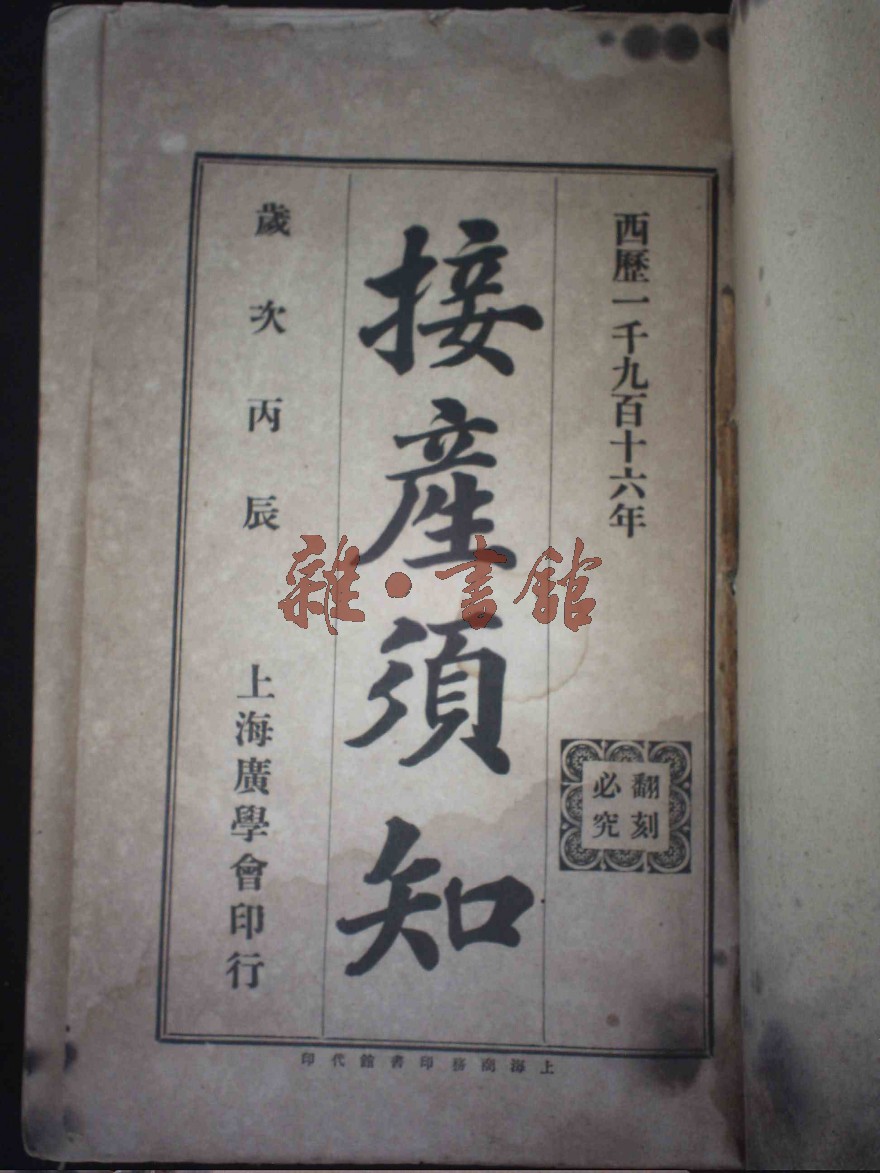 西歷一千九百十六年
翻刻
必究
接產須知
歲次丙辰
上海廣學會印行
上海商務印書館代印
雜·書館